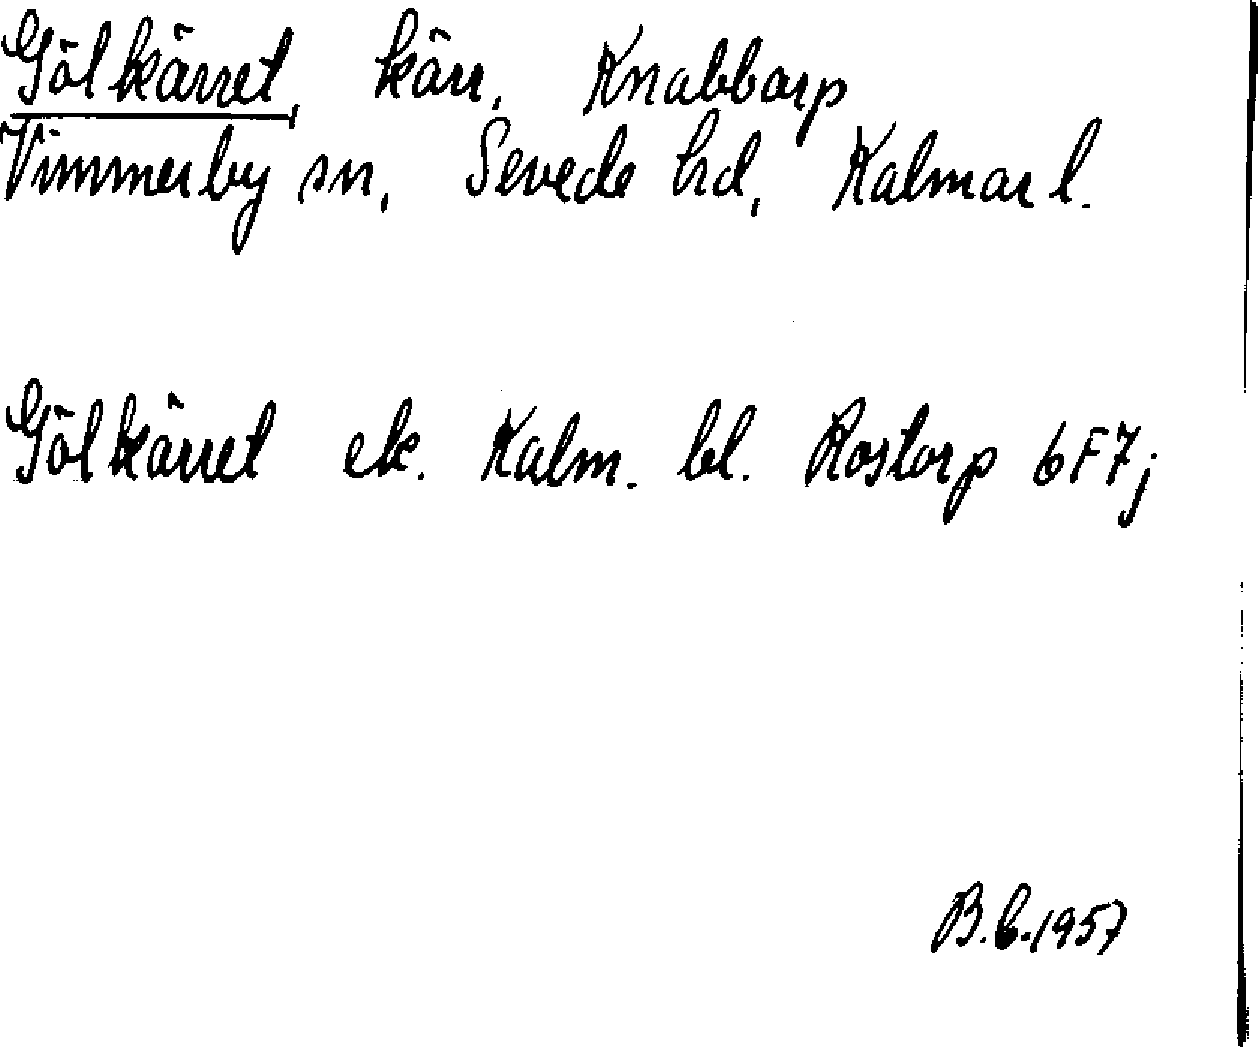 Gölkärret, kärr, Knabbarp
Vimmerby sn, Sevede hd, Kalmar l.
Gölkärret ek. Kalm. bl. Rostorp 6F7j
B.b.1957